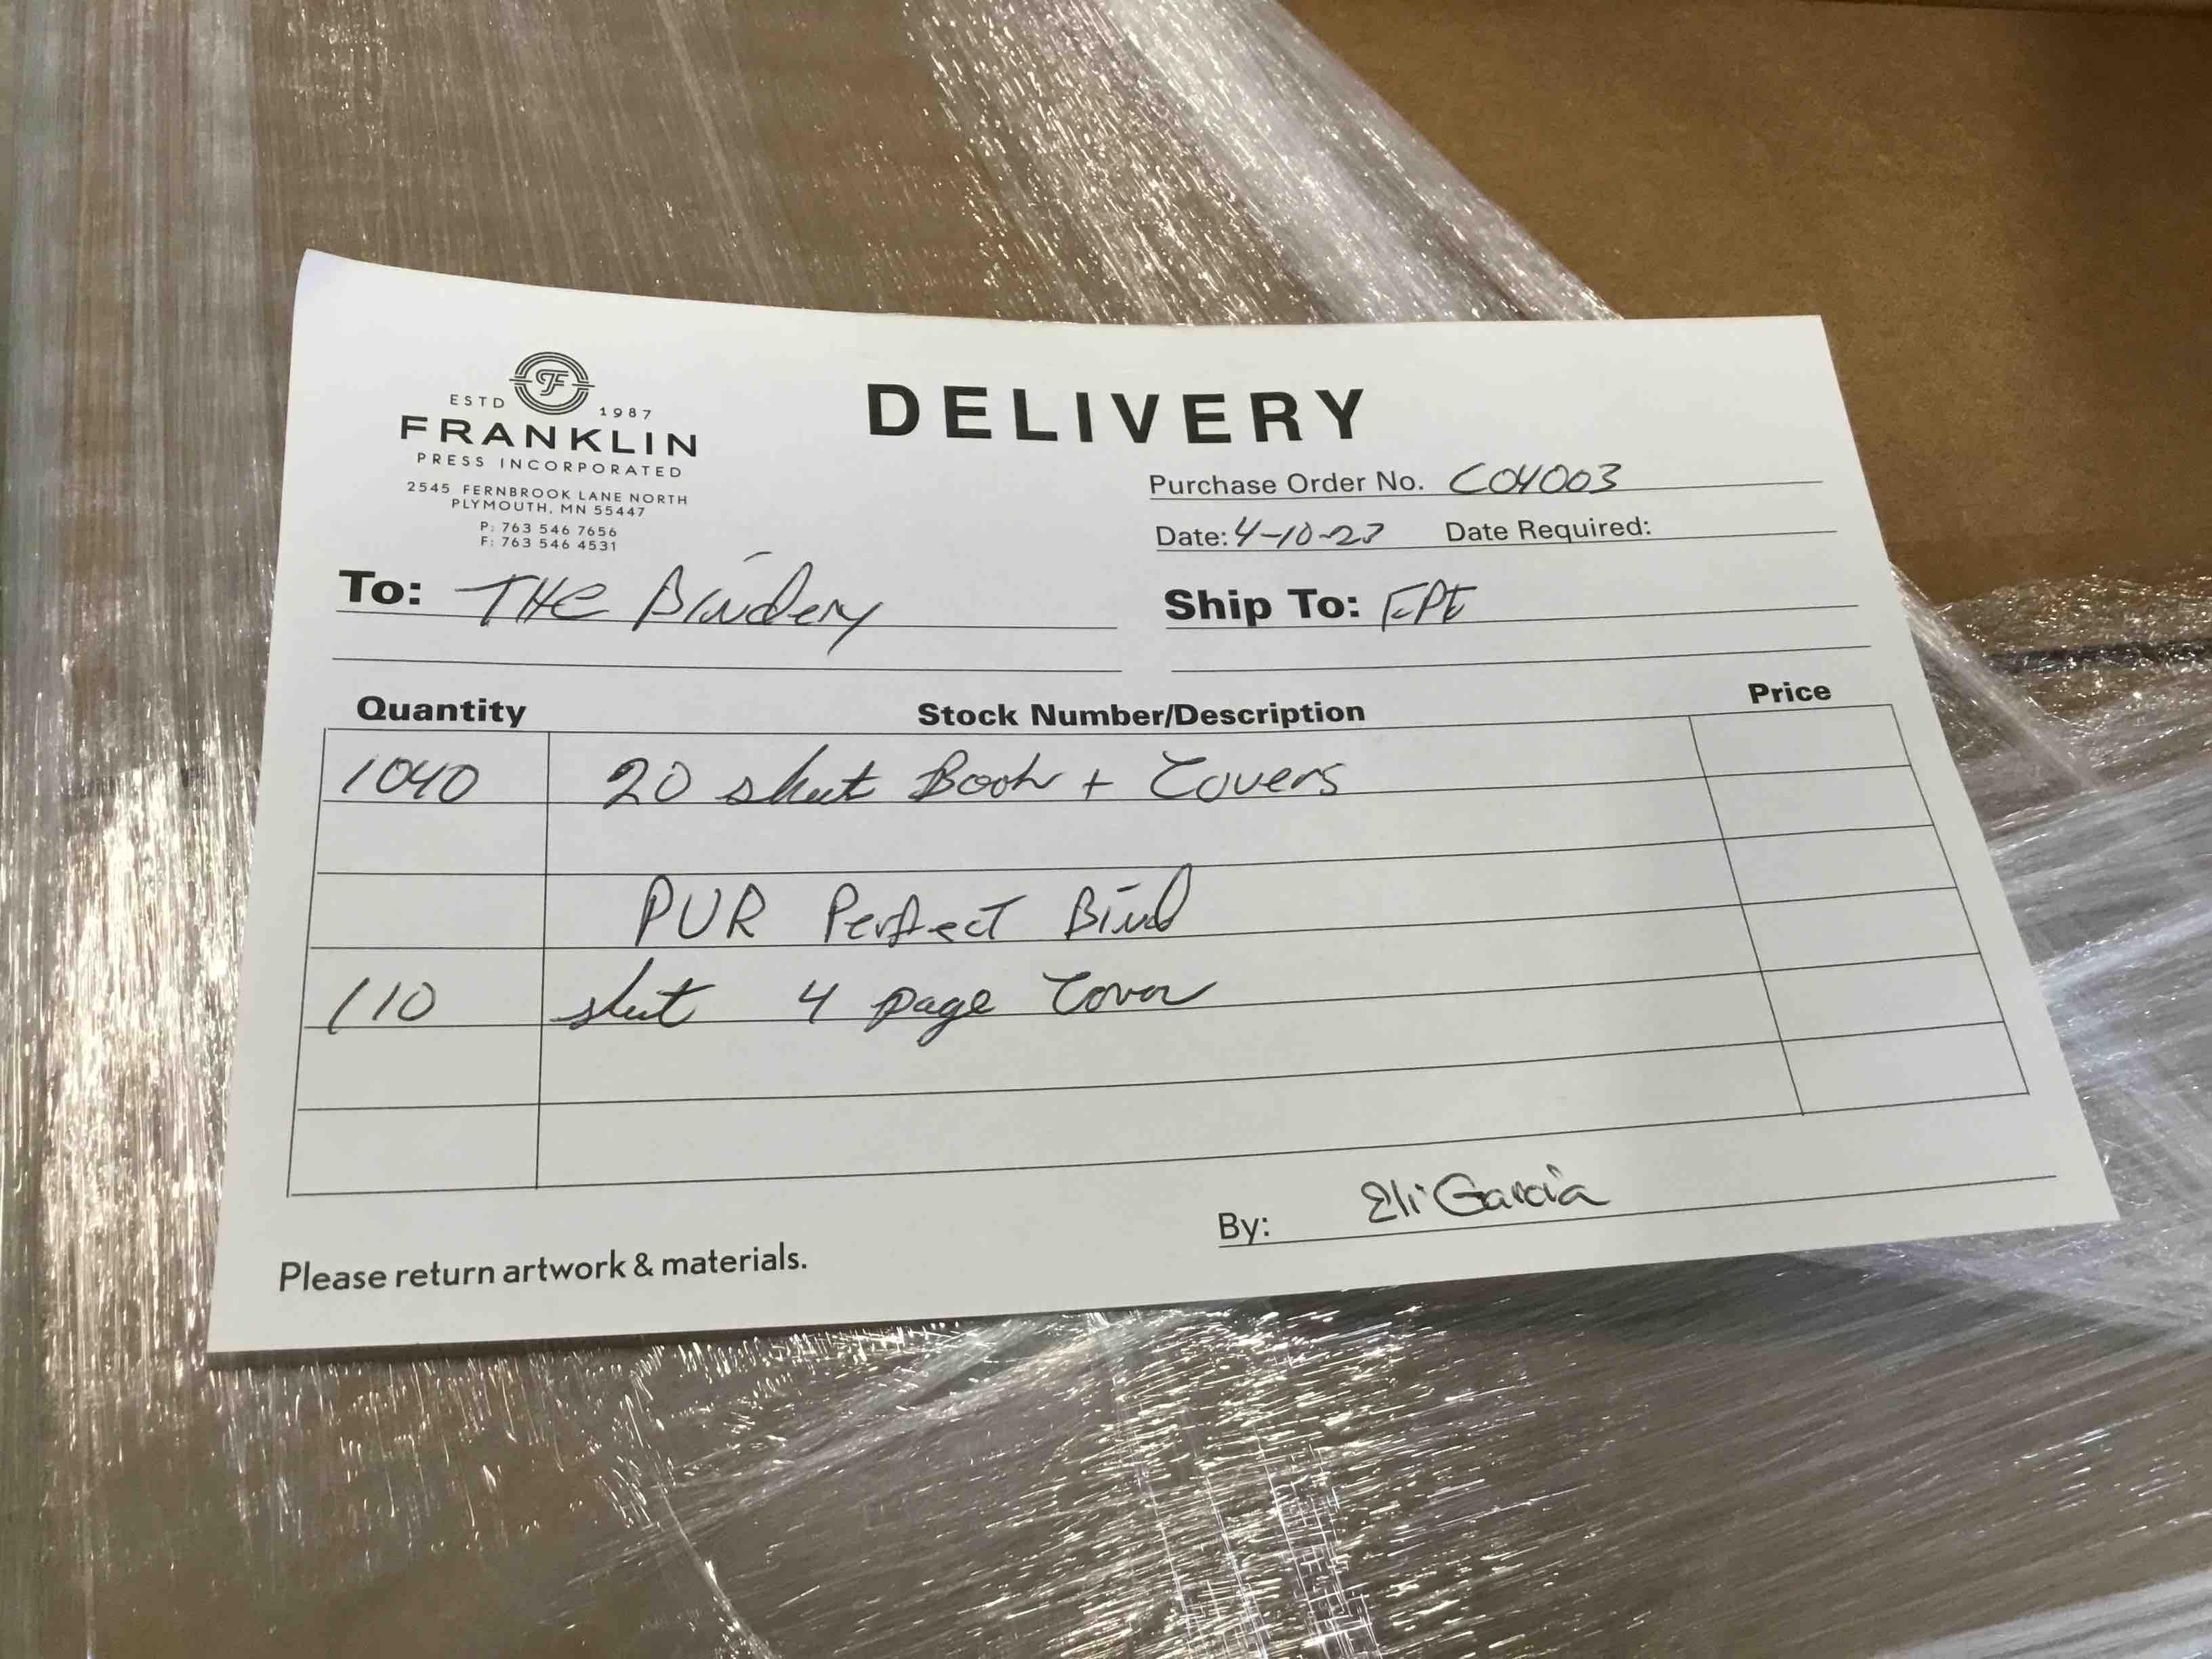 ESTD 1987
FRANKLIN
PRESS INCORPORATED
2545 FERNBROOK LANE NORTH
PLYMOUTH, MN 55447
P: 763 546 7656
F: 763 546 4531
DELIVERY
Purchase Order No. C04003
Date: 4-10-23 Date Required:
To: THE Bindery
Ship To: FPI
Quantity Stock Number/Description Price
1040 20 sheet Book + Covers
PUR Perfect Bind
110 sheet 4 page Cover
By: Eli Garcia
Please return artwork & materials.